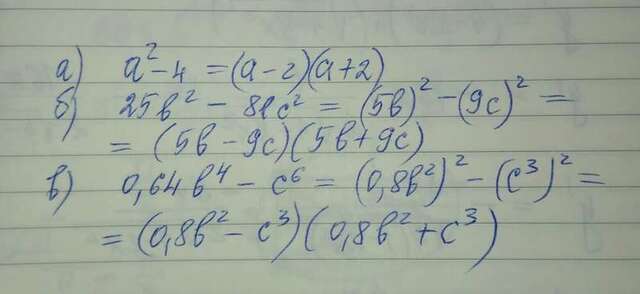 а) a² - 4 = (a - 2)(a + 2)
б) 25b² - 81c² = (5b)² - (9c)² =
= (5b - 9c)(5b + 9c)
в) 0,64b⁴ - c⁶ = (0,8b²)² - (c³)² =
= (0,8b² - c³)(0,8b² + c³)